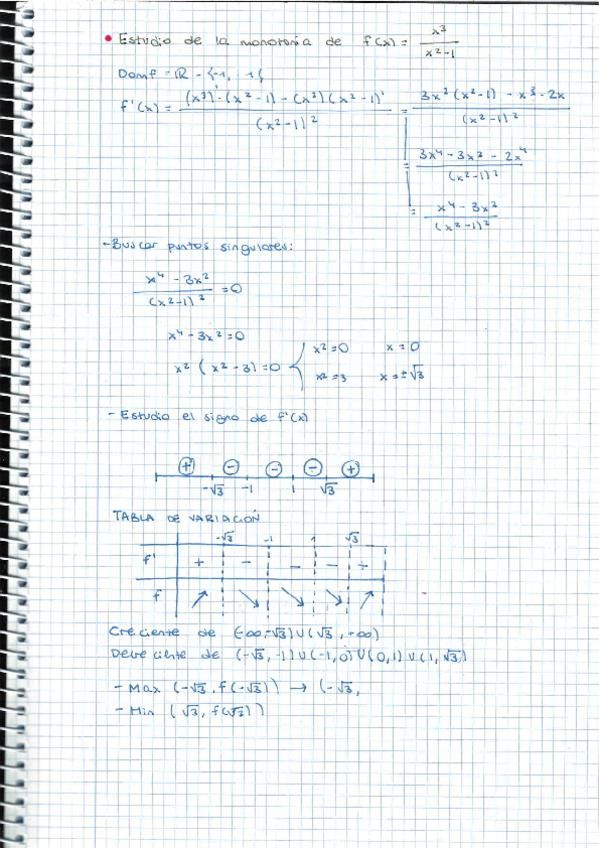 • Estudio de la monotonía de f(x) = x³/(x²-1)
Domf = ℝ - {-1, 1}
f'(x) = ((x³)'·(x²-1) - (x³)(x²-1)')/(x²-1)² = (3x²(x²-1) - x³·2x)/(x²-1)²
= (3x⁴-3x² - 2x⁴)/(x²-1)²
= (x⁴-3x²)/(x²-1)²
- Buscar puntos singulares:
(x⁴-3x²)/(x²-1)² = 0
x⁴-3x²=0
x²(x²-3)=0
x²=0 x=0
x²=3 x=±√3
- Estudio el signo de f'(x)
+ - - - +
-√3 -1 1 √3
TABLA DE VARIACIÓN
-√3 -1 1 √3
f' + - - - +
f ↗ ↘ ↘ ↘ ↗
Creciente de (-∞,-√3)∪(√3,+∞)
Decreciente de (-√3,-1)∪(-1,0)∪(0,1)∪(1,√3)
- Max (-√3, f(-√3)) → (-√3,
- Min (√3, f(√3))